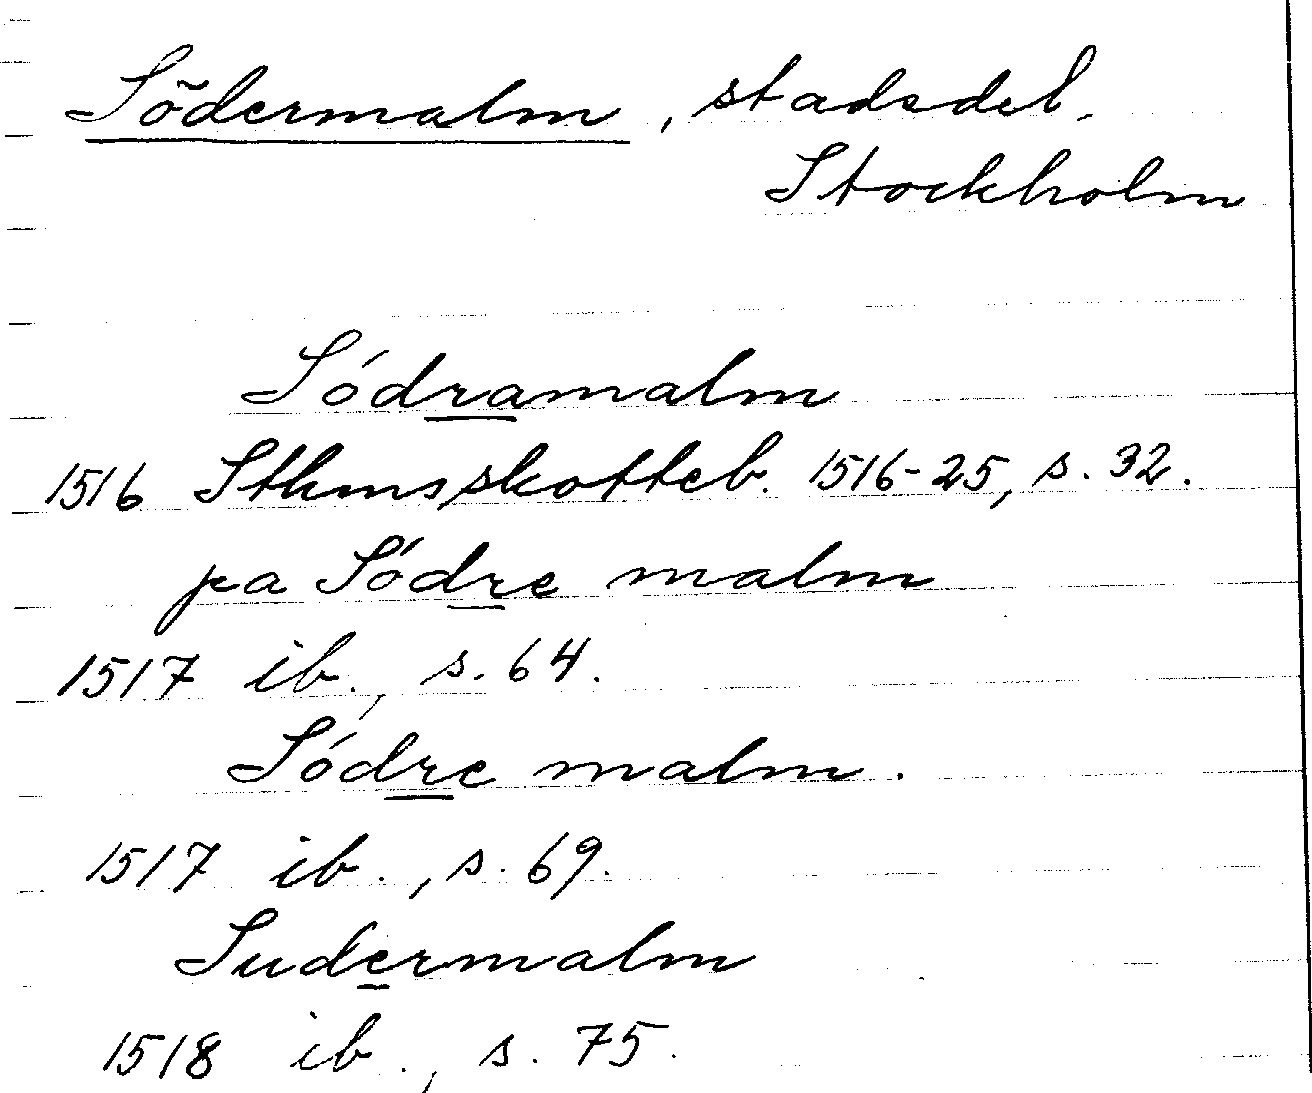 Södermalm, stadsdel.
Stockholm
Sódramalm
1516 Sthmsskotteb. 1516-25, s. 32.
pa Sódre malm
1517 ib., s. 64.
Sódre malm.
1517 ib., s. 69.
Sudermalm
1518 ib., s. 75.